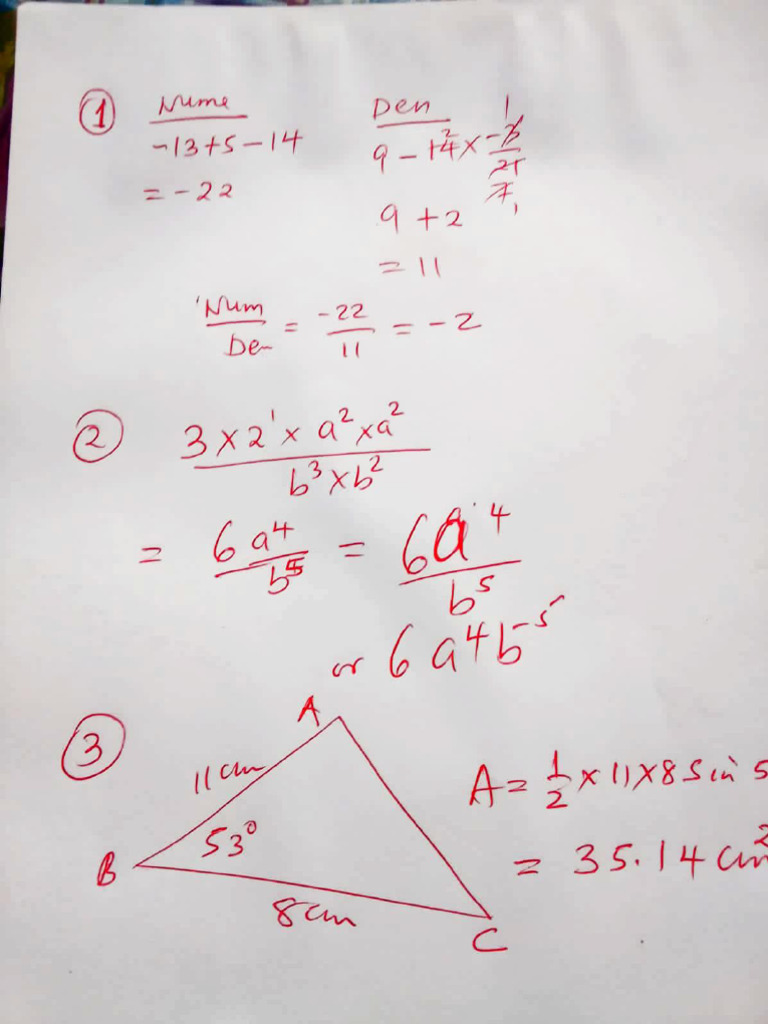 ① Nume
-13+5-14
= -22
Den
9 - 14 × -3/21
9 + 2
= 11
Num/Den = -22/11 = -2
② 3 × 2¹ × a² × a² / b³ × b²
= 6a⁴/b⁵ = 6a⁴/b⁵
or 6a⁴b⁻⁵
③
A
11cm
53°
B
8cm
C
A = ½ × 11 × 8 Sin 5
= 35.14 cm²